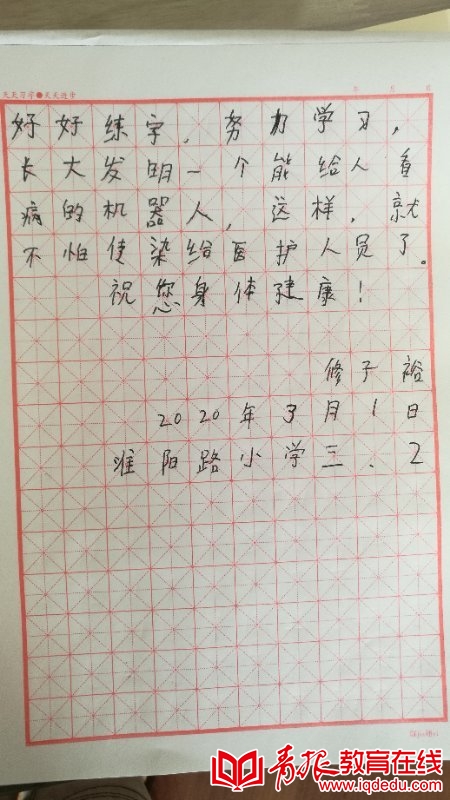 天天习字●天天进步
年 月 日
好好练字，努力学习，
长大发明一个能给人看
病的机器人，这样，就
不怕传染给医护人员了。
祝您身体健康！
修子裕
2020年3月1日
淮阳路小学三、2
青报教育在线
www.iqdedu.com